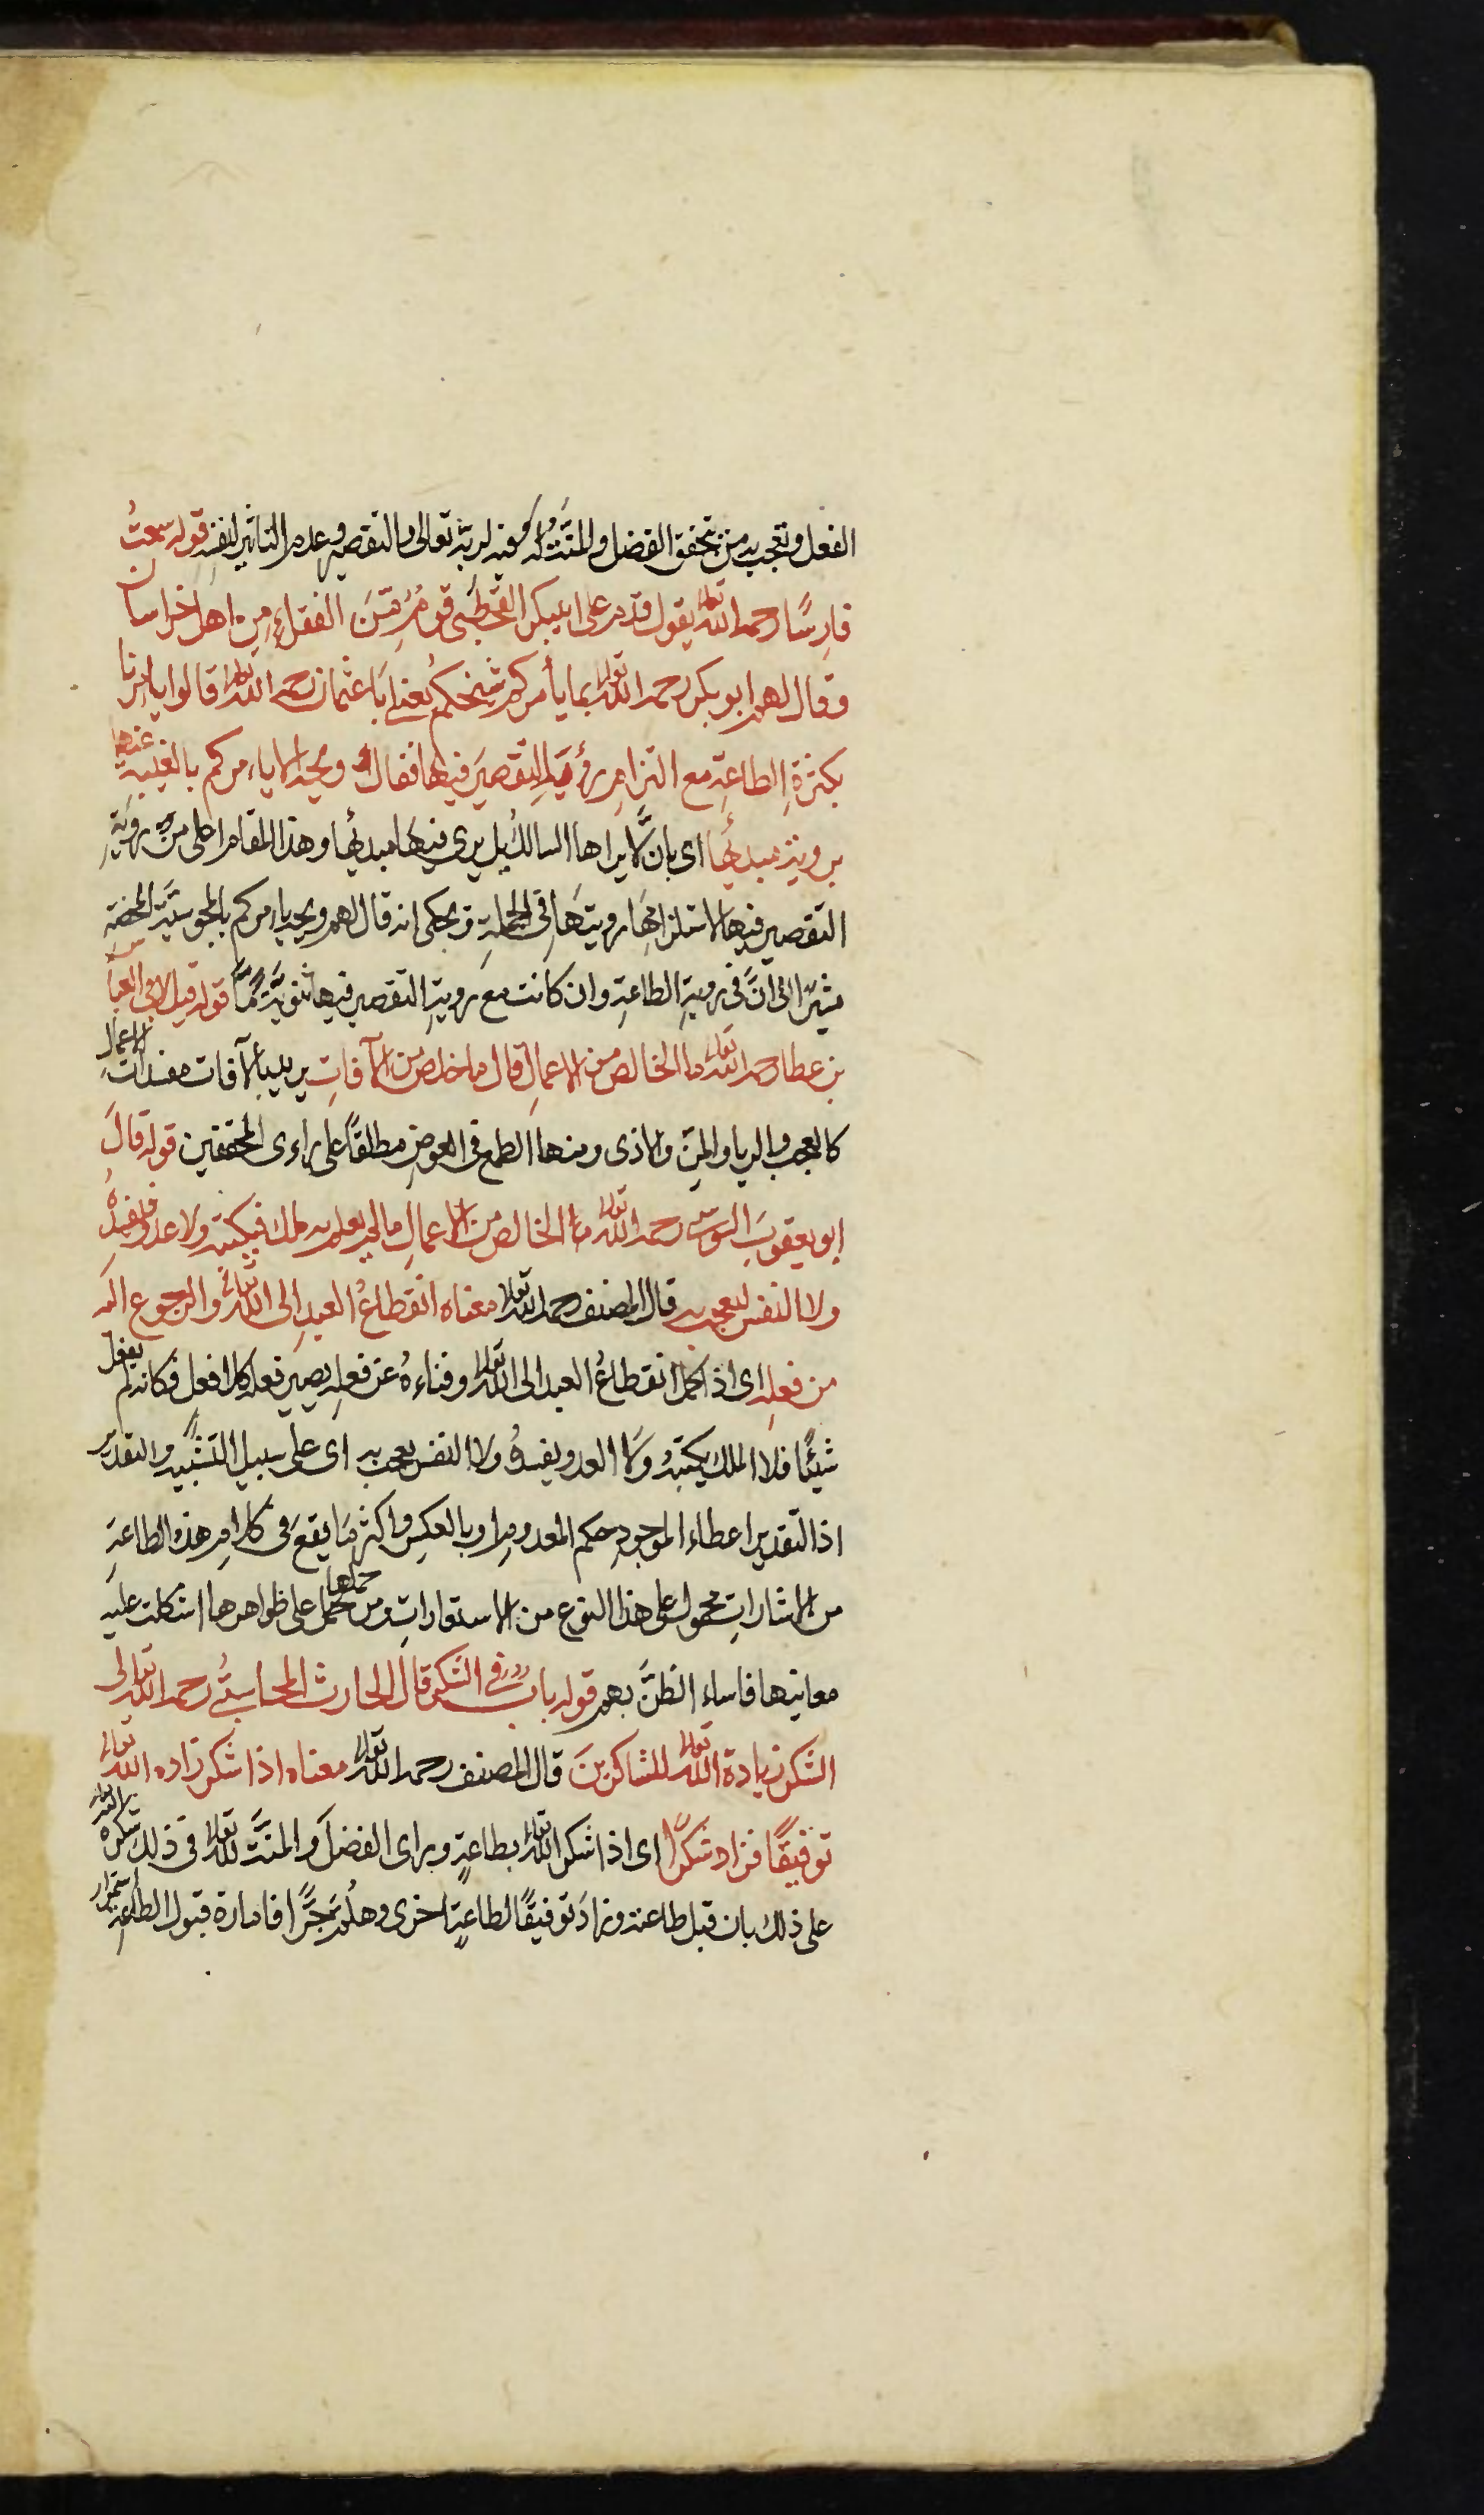 الفعل وتعجب به من تحقق الفضل والمنة له وفيه لربه تعالى والتقصير وعدم التاثير لنفسه قوله سمعتُ
فارسًا رحمه الله تعالى يقول قدم على ابى بكر القحطبى قوم من الفقراءِ من اهل خراسان
وقال لهم ابو بكر رحمه الله تعالى بما يأمركم شيخكم يعنى ابا عثمان رحمه الله تعالى قالوا يأمرنا
بكثرةِ الطاعةِ مع التزامِ رؤيةِ التقصير فيها فقال ويحه الا ياءمركم بالغيبةِ عنها
برويةِ مبدئها اى بان لا يراها السالك بل يرى فيها مبدئها وهذا المقام اعلى من رويةِ
التقصير فيها لاستلزامها رويتها فى الجملةِ ويحكى انه قال لهم ويحه ياءمركم بالمجوسية المحضة
مشيرًا الى انَّ فى رويةِ الطاعةِ وان كانت مع رويةِ التقصير فيها ثنويَّةً مَّا قوله قيل لابى العباس
بن عطا رحمه الله تعالى ما الخالص من الاعمالِ قال ما خلص من الآفاتِ يريد بالآفات مفسدات الاعمال
كالعجب والريا والمنّ والاذى ومنها الطمع فى العوض مطلقًا على راءى المحققين قوله قالَ
ابو يعقوب السوسى رحمه الله تعالى ما الخالص من الاعمالِ ما لم يعلم به ملك فيكتبه ولا عدو فيفسدهُ
ولا النفس لتعجب به قال المصنف رحمه الله تعالى معناه انقطاعُ العبدِ الى الله تعالى والرجوع اليه
من فعلِه اى اذا كمل انقطاعُ العبد الى الله تعالى وفناءهُ عن فعلِه يصير فعله كلا فعل فكانه لم يفعل
شيئًا فلا الملك يكتبهُ ولا العدو يفسدهُ ولا النفس يعجب به اى على سبيل التشبيه والتقدير
اذ التقدير اعطاء الموجودِ حكم المعدومِ او بالعكس واكثر ما يقع فى كلام هذه الطاعةِ
من الاشاراتِ محمول على هذا النوع من الاستعاراتِ ومن حملها على ظواهرها اشكلت عليه
معانيها فاساء الظنَّ بهم قوله باب فى الشكر قال الحارث المحاسبىُّ رحمه الله تعالى
الشكر زيادة الله تعالى للشاكرين قال المصنف رحمه الله تعالى معناه اذا شكر زاده الله تعالى
توفيقًا فزاد شكرًا اى اذا شكر الله تعالى بطاعةٍ وراى الفضل والمنّة لله تعالى فى ذلك شكره الله تعالى
على ذلك بان قبل طاعته وزادَ توفيقًا لطاعةٍ اخرى وهلُم جرًّا فامارة قبول الطاعةِ استمرار